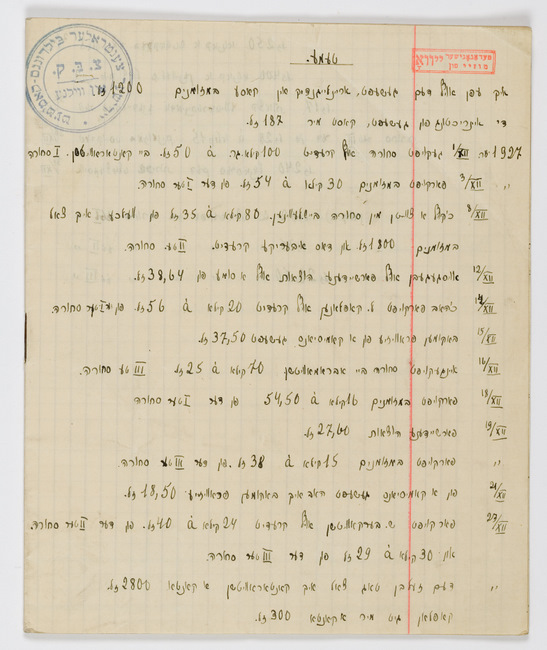 צענטראלער בילדונגס-קאמיטעט
צ. ב. ק.
אין ווילנע
טעמע.
איך עפן אויף דעם געשעפט, אריינלייגנדיק אין קאסע במזומנים 1200 זל.
די איינריכטונג פון געשעפט, קאסט מיר 187 זל.
1927 יאר 1/XII געקויפט סחורה אויף קרעדיט 100 קילאגר. à 50 זל. ביי קאנטאראוויטשן. I סחורה
" 3/XII פארקויפט במזומנים 30 קילא à 54 זל. פון דער II טער סחורה.
8/XII כ'קויף א צווייטן מין סחורה ביי שעלעווינגען. 80 קילא à 35 זל. פון וועלכע איך צאל
במזומנים 1800 זל. און דאס איבעריקע קרעדיט. II טע סחורה.
12/XII אויסגעגעבן אויף פארשיידענע הוצאות אויף א סומע פון 38,64 זל.
14/XII כ'האב פארקויפט ל. קאפלאנען אויף קרעדיט 20 קילא à 56 זל. פון I טער סחורה.
15/XII באקומען פראוויזיע פון א קאמיסיאנס געשעפט 37,50 זל.
16/XII איינגעקויפט סחורה ביי אבראמאוויטשן 70 קילא à 25 זל. III טע סחורה.
18/XII פארקויפט במזומנים 16 קילא à 54,50 פון דער I טער סחורה
19/XII פארשיידענע הוצאות 27,60 זל.
" פארקויפט במזומנים 15 קילא à 38 זל. פון דער III טער סחורה.
21/XII פון א קאמיסיאנס געשעפט האב איך באקומען פראוויזיע 18,50 זל.
27/XII פארקויפט ש. בערקאוויטשן אויף קרעדיט 24 קילא à 40 זל. פון דער II טער סחורה.
און 30 קילא à 29 זל. פון דער III טער סחורה.
" דעם זעלבן טאג צאל איך קאנטאראוויטשן א קאנטא 2800 זל.
קאפלאן גיט מיר א קאנטא 300 זל.